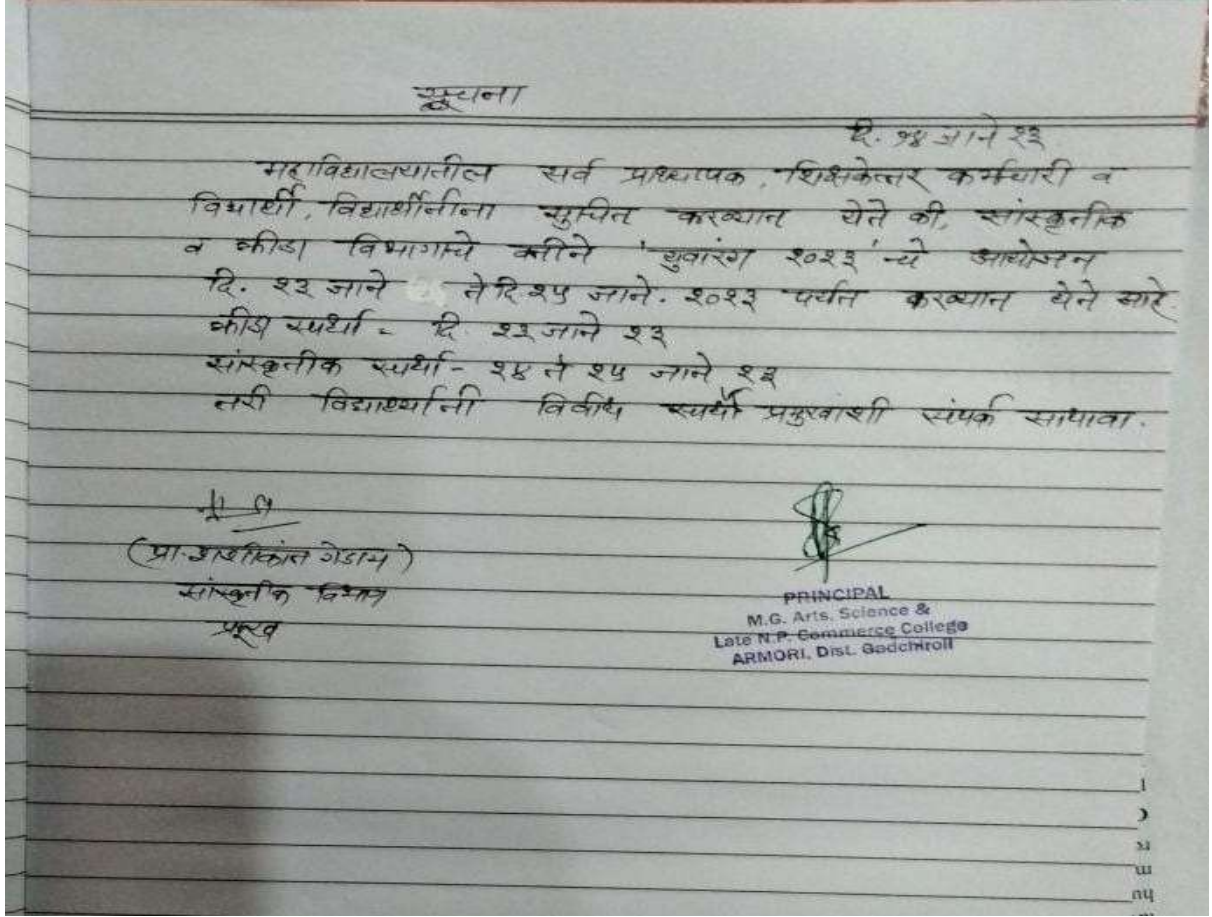 सूचना
दि. १४ जाने २३
महाविद्यालयातील सर्व प्राध्यापक, शिक्षकेत्तर कर्मचारी व
विद्यार्थी, विद्यार्थीनीना सुचित करण्यात येते की, सांस्कृतीक
व क्रीडा विभागाचे वतीने 'युवारंग २०२३' चे आयोजन
दि. २३ जाने ते दि २५ जाने. २०२३ पर्यंत करण्यात येते आहे.
क्रीडा स्पर्धा - दि. २३ जाने २३
सांस्कृतीक स्पर्धा - २४ ते २५ जाने २३
तरी विद्यार्थ्यांनी विवीध स्पर्धा प्रमुखांशी संपर्क साधावा.
(प्रा. शशीकांत गेडाम)
सांस्कृतीक विभाग
प्रमुख
PRINCIPAL
M.G. Arts, Science &
Late N.P. Commerce College
ARMORI, Dist. Gadchiroli